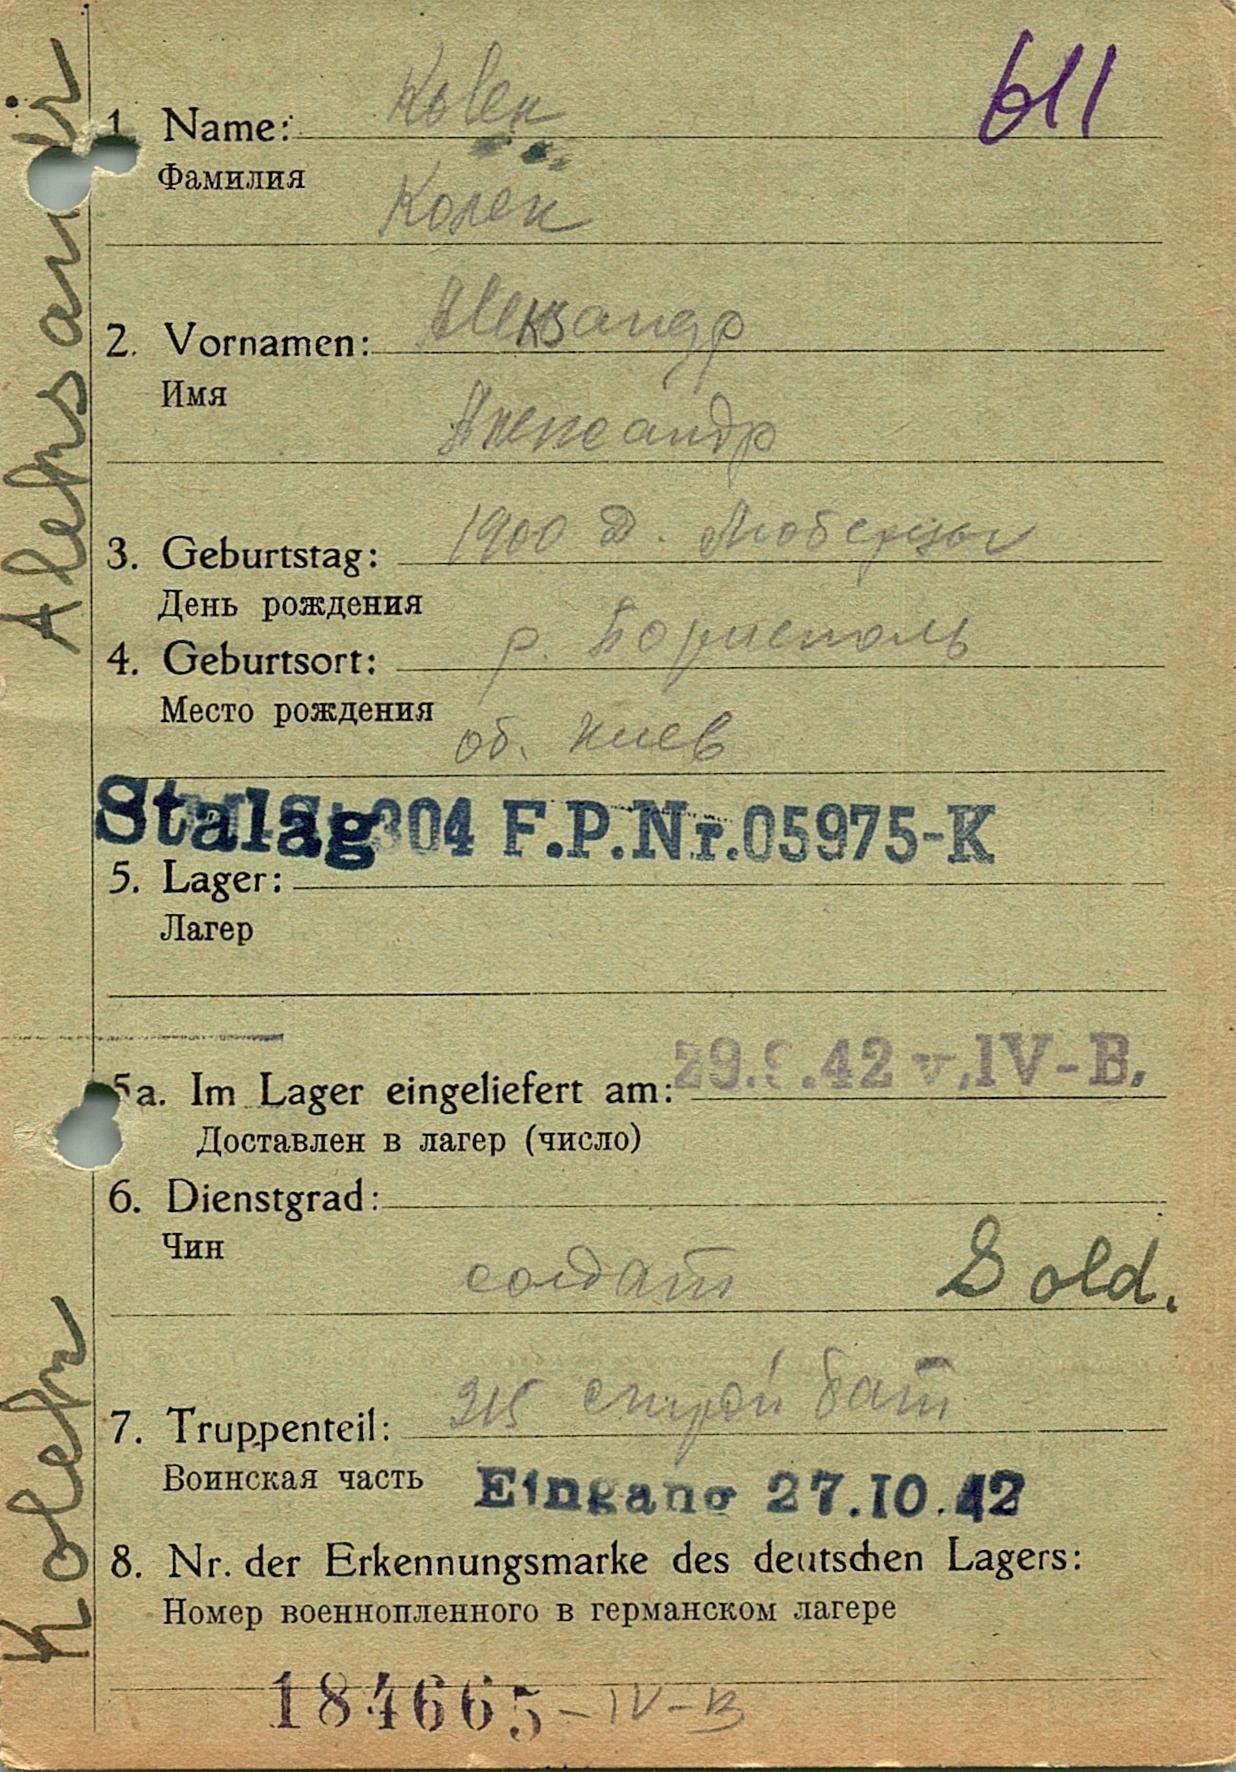 611
1. Name: Kolek
Фамилия
Колек
2. Vornamen: Александр
Имя
Александр
3. Geburtstag: 1900 Д.
День рождения
4. Geburtsort: р. Борисполь
Место рождения
об. Киев
Stalag 304 F.P.Nr.05975-K
5. Lager:
Лагер
5a. Im Lager eingeliefert am: 29.9.42 v.IV-B.
Доставлен в лагер (число)
6. Dienstgrad:
Чин
солдат Sold.
7. Truppenteil: 215 строй бат
Воинская часть
Eingang 27.10.42
8. Nr. der Erkennungsmarke des deutschen Lagers:
Номер военнопленного в германском лагере
184665 - IV-B
Kolek Aleksandr